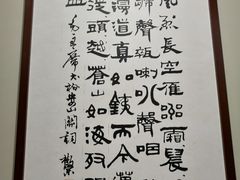 風烈長空雁叫霜晨
蹄聲碎喇叭聲咽
漫道真如鐵而今邁
從頭越蒼山如海殘陽
血
毛主席婁山關詞